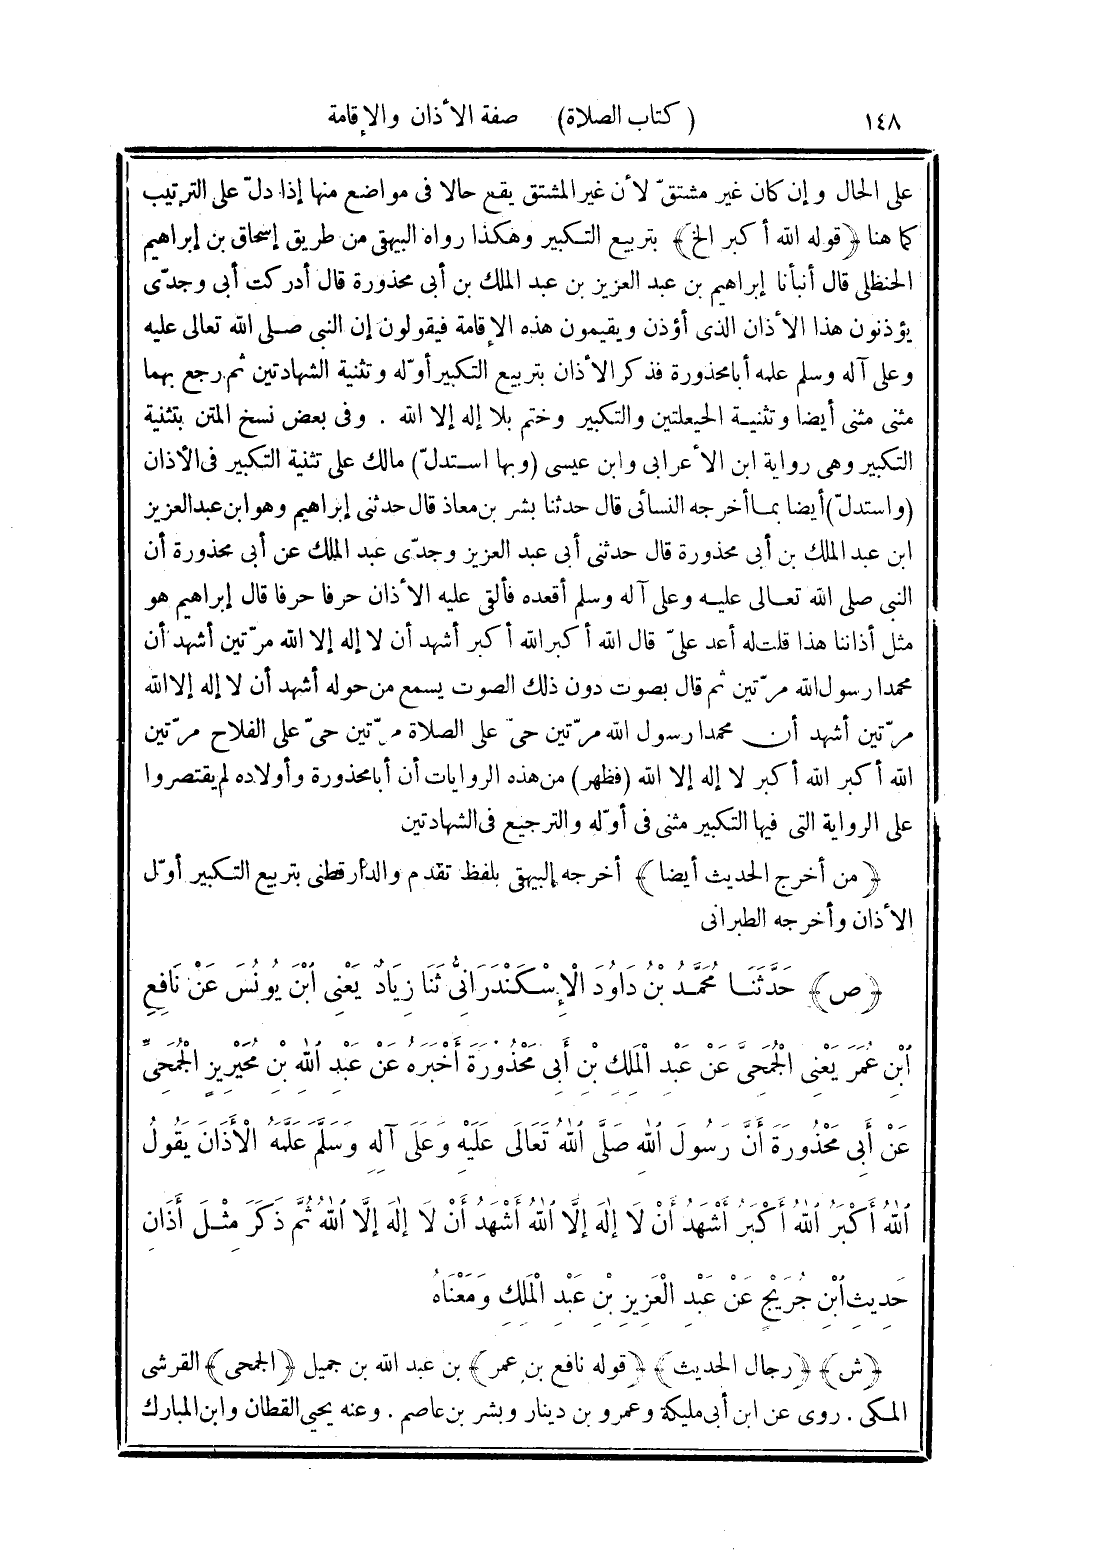 ١٤٨ (كتاب الصلاة) صفة الأذان والإقامة
على الحال وإن كان غير مشتقّ لأن غير المشتق يقع حالا فى مواضع منها إذا دلّ على الترتيب
كما هنا ﴿قوله الله أكبر الخ﴾ بتربيع التكبير وهكذا رواه البيهقى من طريق إسحاق بن إبراهيم
الحنظلى قال أنبأنا إبراهيم بن عبد العزيز بن عبد الملك بن أبى محذورة قال أدركت أبى وجدّى
يؤذنون هذا الأذان الذى أؤذن ويقيمون هذه الإقامة فيقولون إن النبى صلى الله تعالى عليه
وعلى آله وسلم علمه أبا محذورة فذكر الأذان بتربيع التكبير أوّله وتثنية الشهادتين ثم رجع بهما
مثنى مثنى أيضا وتثنية الحيعلتين والتكبير وختم بلا إله إلا الله . وفى بعض نسخ المتن بتثنية
التكبير وهى رواية ابن الأعرابى وابن عيسى (وبها استدلّ) مالك على تثنية التكبير فى الأذان
(واستدلّ) أيضا بما أخرجه النسائى قال حدثنا بشر بن معاذ قال حدثنى إبراهيم وهو ابن عبد العزيز
ابن عبد الملك بن أبى محذورة قال حدثنى أبى عبد العزيز وجدّى عبد الملك عن أبى محذورة أن
النبى صلى الله تعالى عليه وعلى آله وسلم أقعده فألقى عليه الأذان حرفا حرفا قال إبراهيم هو
مثل أذاننا هذا قلت له أعد علىّ قال الله أكبر الله أكبر أشهد أن لا إله إلا الله مرّتين أشهد أن
محمدا رسول الله مرّتين ثم قال بصوت دون ذلك الصوت يسمع من حوله أشهد أن لا إله إلا الله
مرّتين أشهد أن محمدا رسول الله مرّتين حىّ على الصلاة مرّتين حىّ على الفلاح مرّتين
الله أكبر الله أكبر لا إله إلا الله (فظهر) من هذه الروايات أن أبا محذورة وأولاده لم يقتصروا
على الرواية التى فيها التكبير مثنى فى أوّله والترجيع فى الشهادتين
﴿من أخرج الحديث أيضا﴾ أخرجه البيهقى بلفظ تقدم والدارقطنى بتربيع التكبير أوّل
الأذان وأخرجه الطبرانى
﴿ص﴾ حَدَّثَنَا مُحَمَّدُ بْنُ دَاوُدَ الْإِسْكَنْدَرَانِىُّ ثَنَا زِيَادٌ يَعْنِى ابْنَ يُونُسَ عَنْ نَافِعِ
ابْنِ عُمَرَ يَعْنِى الْجُمَحِىَّ عَنْ عَبْدِ الْمَلِكِ بْنِ أَبِى مَحْذُورَةَ أَخْبَرَهُ عَنْ عَبْدِ اللهِ بْنِ مُحَيْرِيزٍ الْجُمَحِىِّ
عَنْ أَبِى مَحْذُورَةَ أَنَّ رَسُولَ اللهِ صَلَّى اللهُ تَعَالَى عَلَيْهِ وَعَلَى آلِهِ وَسَلَّمَ عَلَّمَهُ الْأَذَانَ يَقُولُ
اللهُ أَكْبَرُ اللهُ أَكْبَرُ أَشْهَدُ أَنْ لَا إِلٰهَ إِلَّا اللهُ أَشْهَدُ أَنْ لَا إِلٰهَ إِلَّا اللهُ ثُمَّ ذَكَرَ مِثْلَ أَذَانِ
حَدِيثِ ابْنِ جُرَيْجٍ عَنْ عَبْدِ الْعَزِيزِ بْنِ عَبْدِ الْمَلِكِ وَمَعْنَاهُ
﴿ش﴾ ﴿رجال الحديث﴾ ﴿قوله نافع بن عمر﴾ بن عبد الله بن جميل ﴿الجمحى﴾ القرشى
المكى . روى عن ابن أبى مليكة وعمرو بن دينار وبشر بن عاصم . وعنه يحيى القطان وابن المبارك